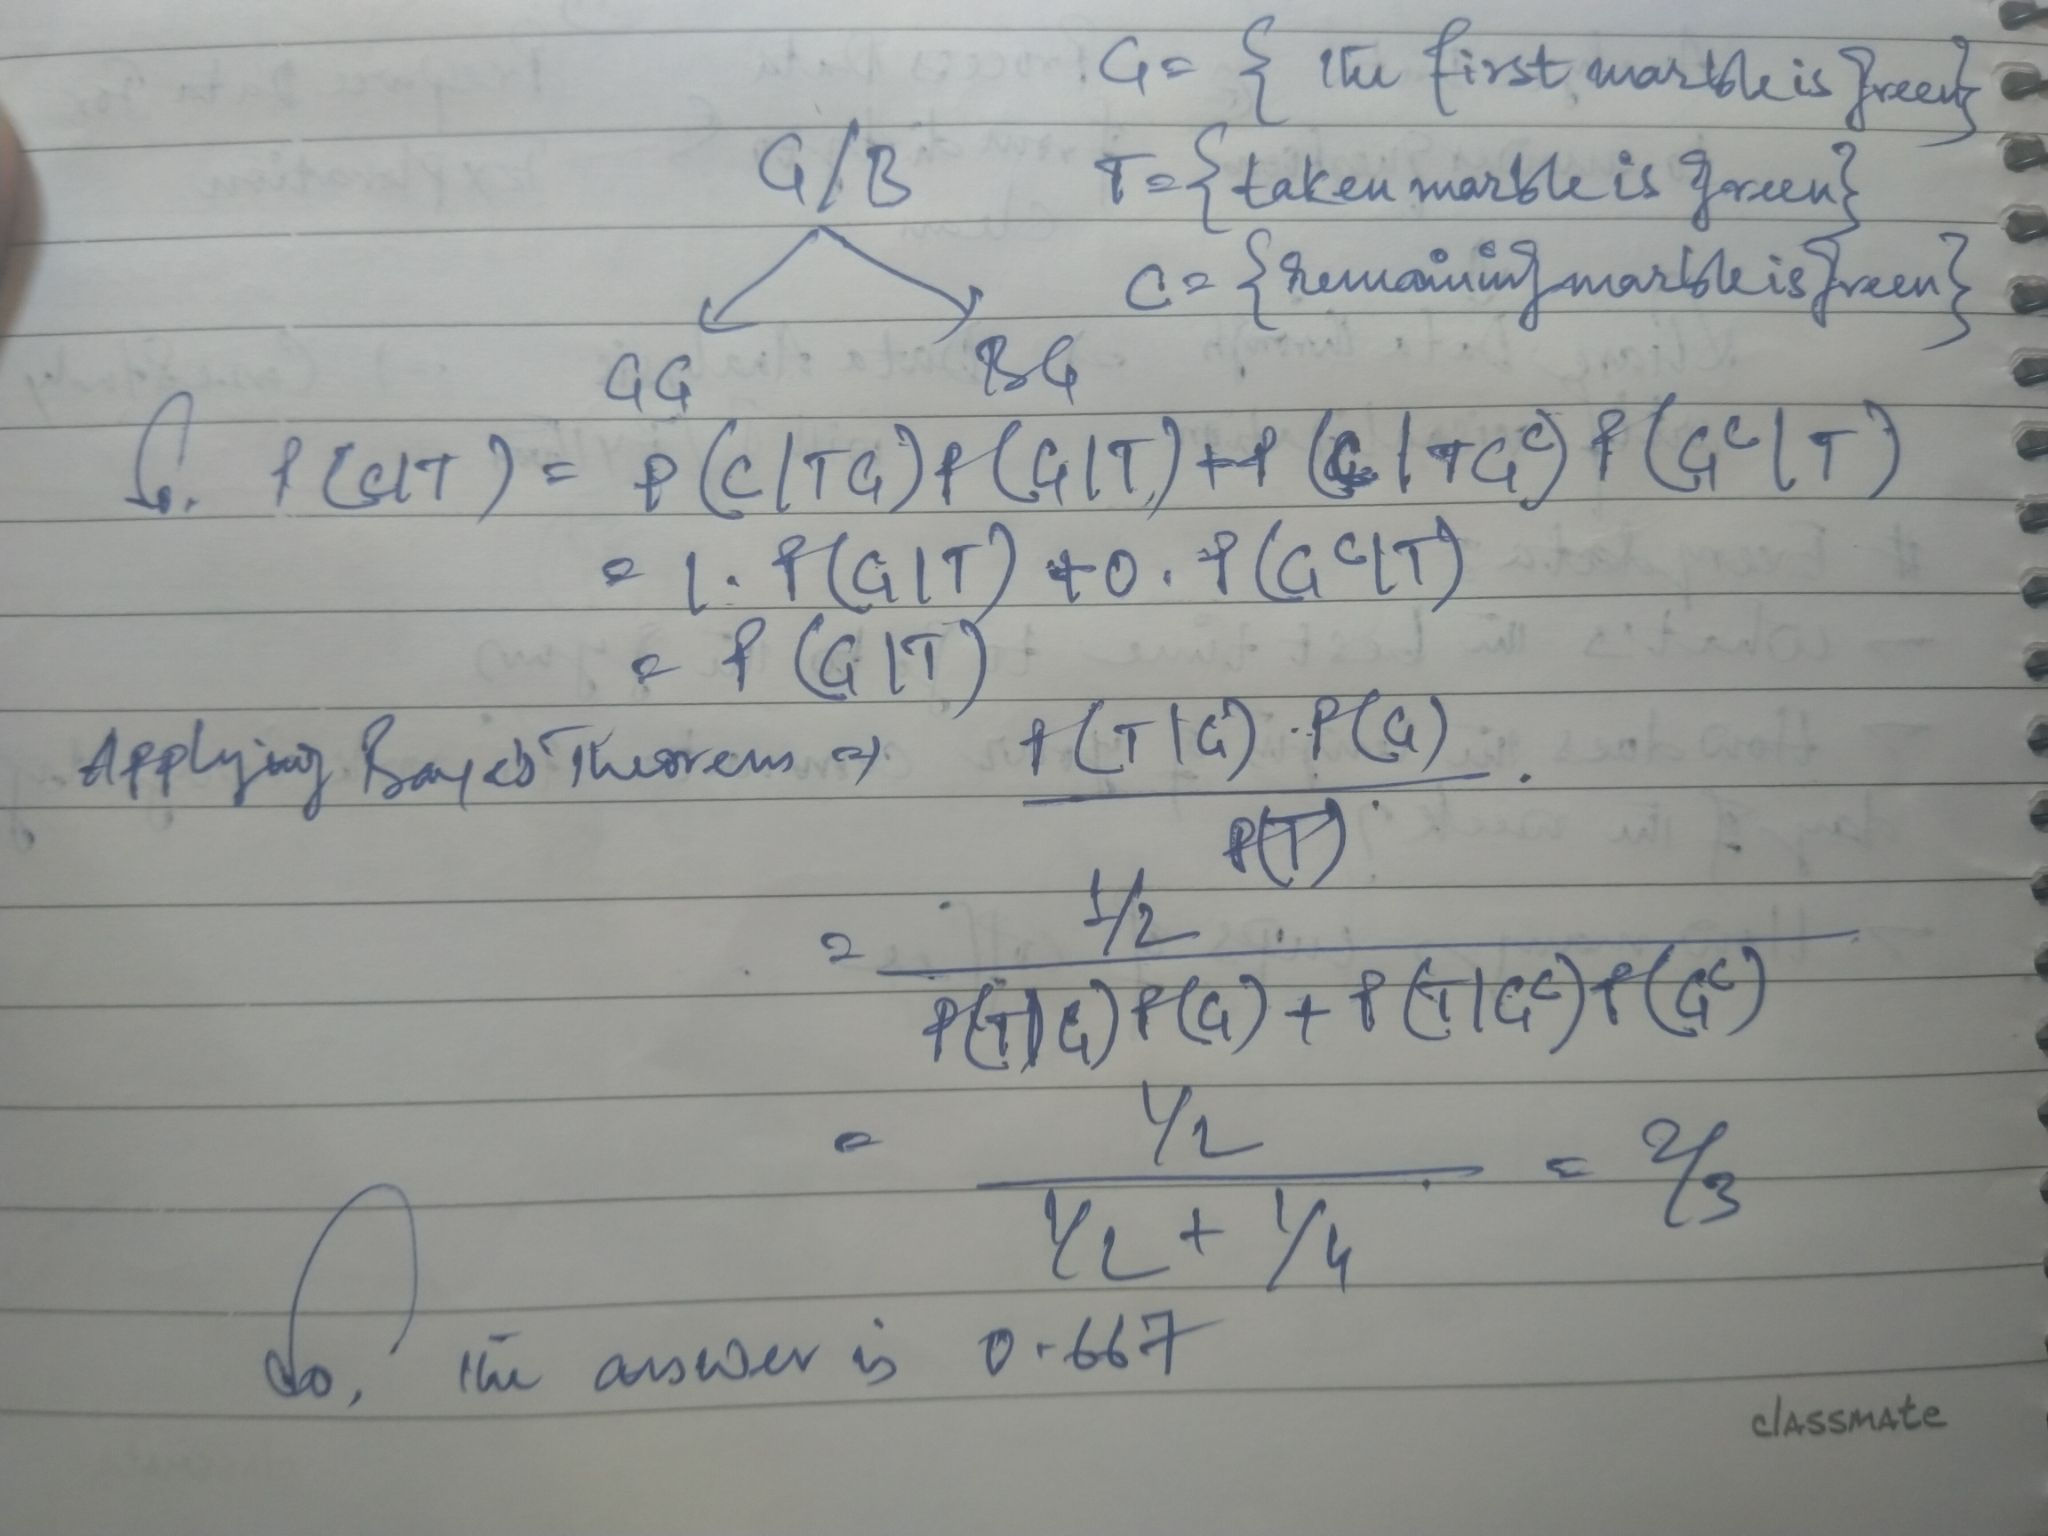 G = { the first marble is green}
G/B
T = { taken marble is green}
C = { remaining marble is green}
GG
BG
So. P(C|T) = P(C|TG)P(G|T) + P(C|TGᶜ) P(Gᶜ|T)
= 1. P(G|T) + 0. P(Gᶜ|T)
= P(G|T)
Applying Bayes Theorem ⇒ P(T|G) . P(G)
P(T)
= 1/2
P(T|G) P(G) + P(T|Gᶜ) P(Gᶜ)
= 1/2
1/2 + 1/4
= 2/3
So, the answer is 0.667
classmate